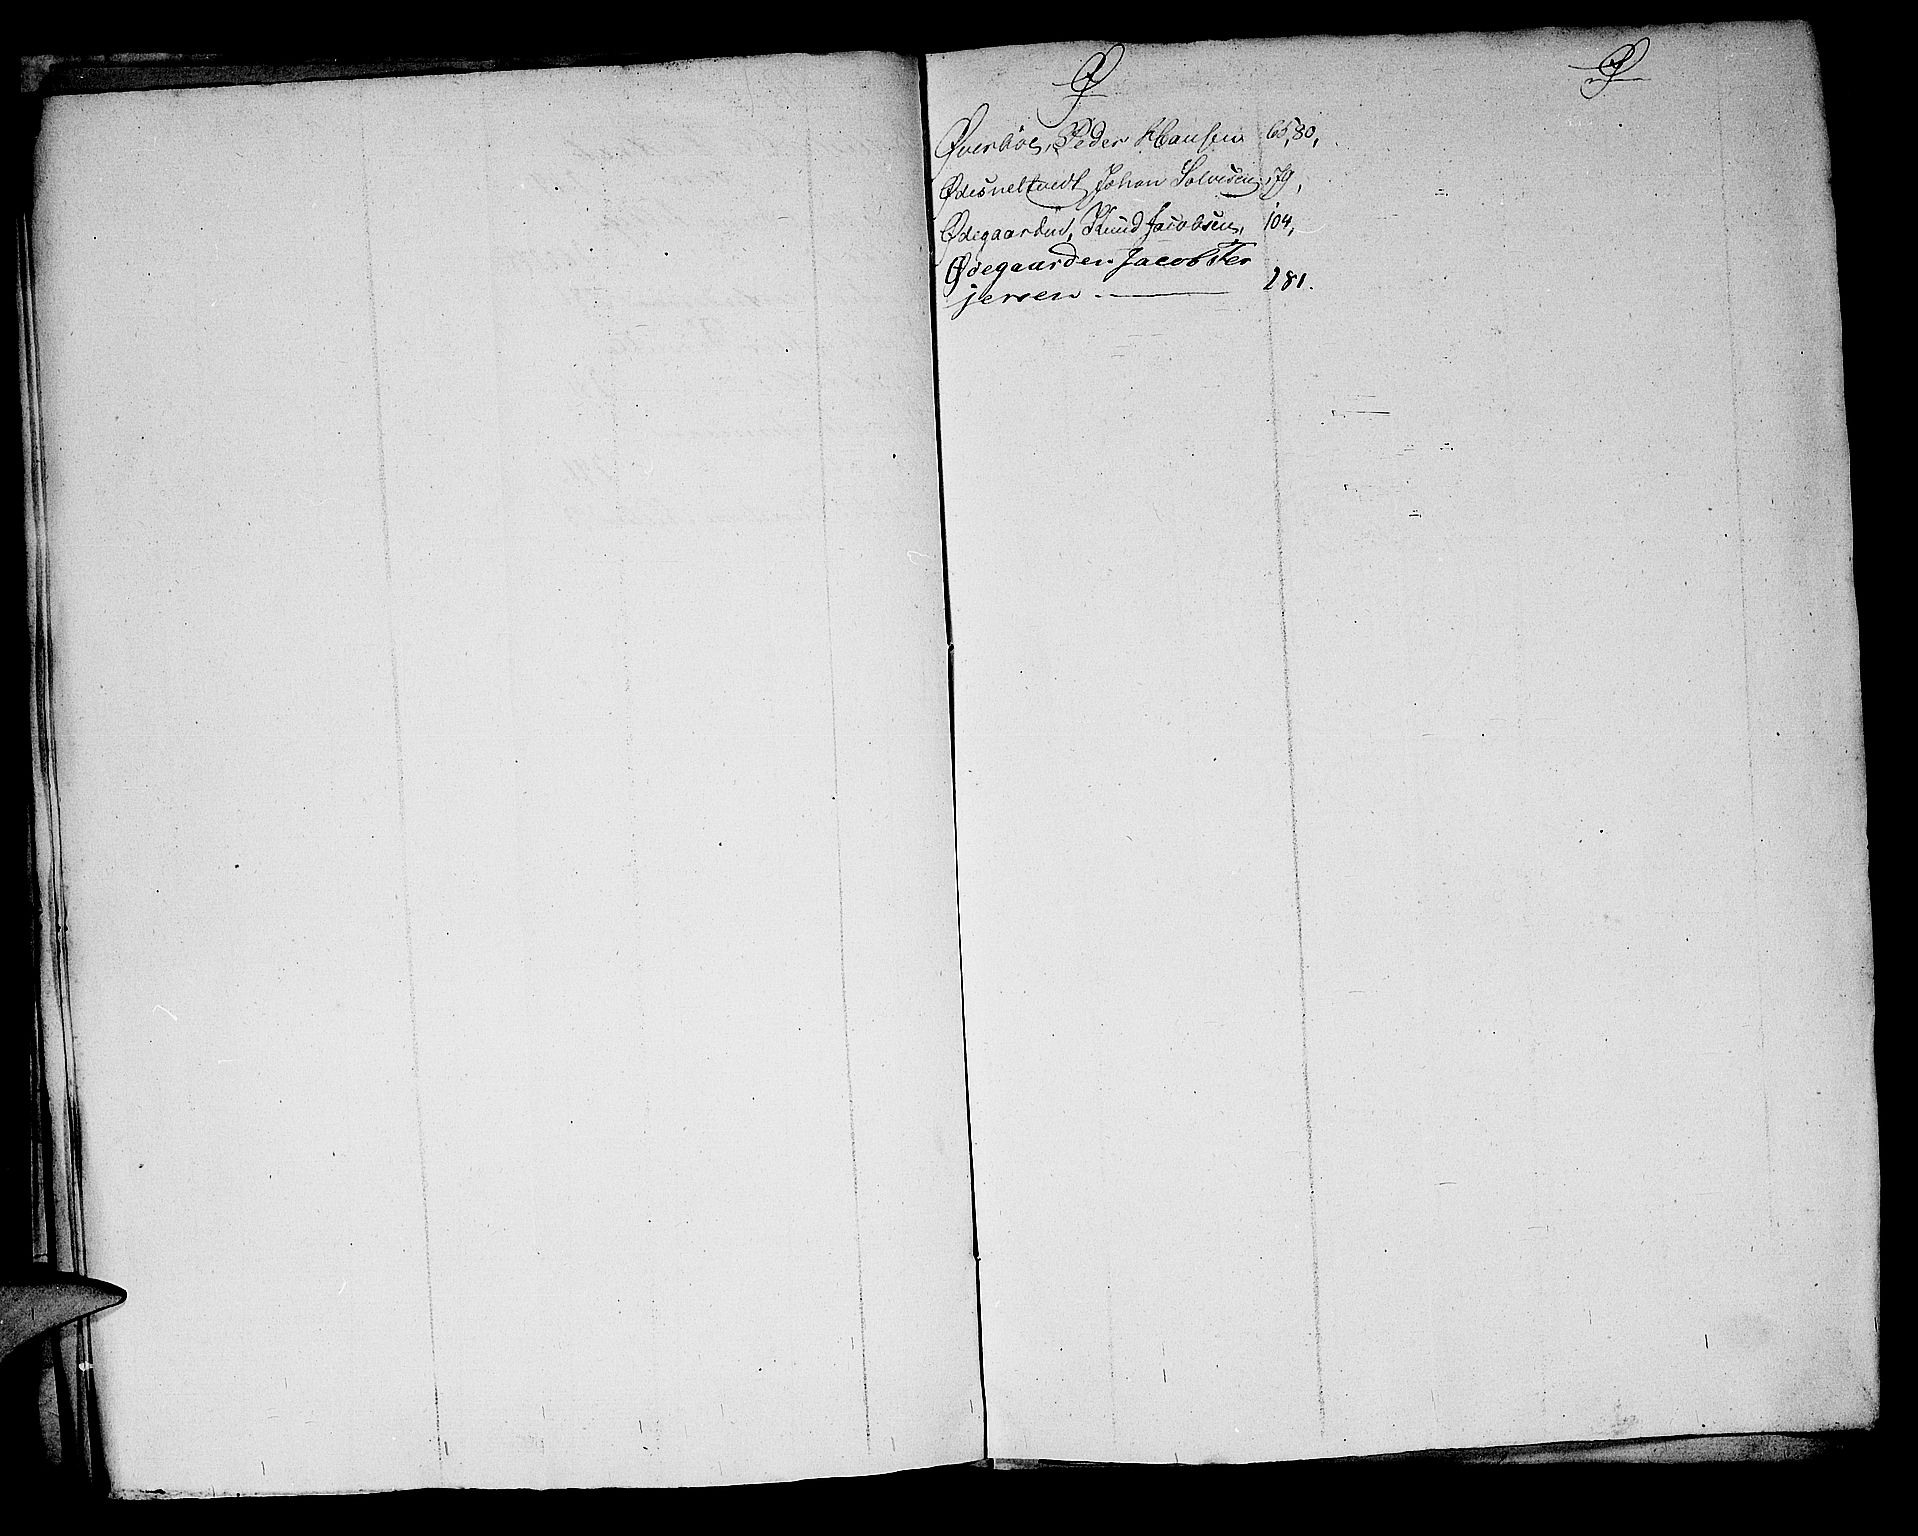 Ø
Ø
Øverböe, Peder Hansen 65, 80,
Ødesneltvedt, Johan Solvesen, 79,
Ødegaarden, Knud Jacobsen, 104,
Ødegaarden Jacob Ter
jersen. — 281.